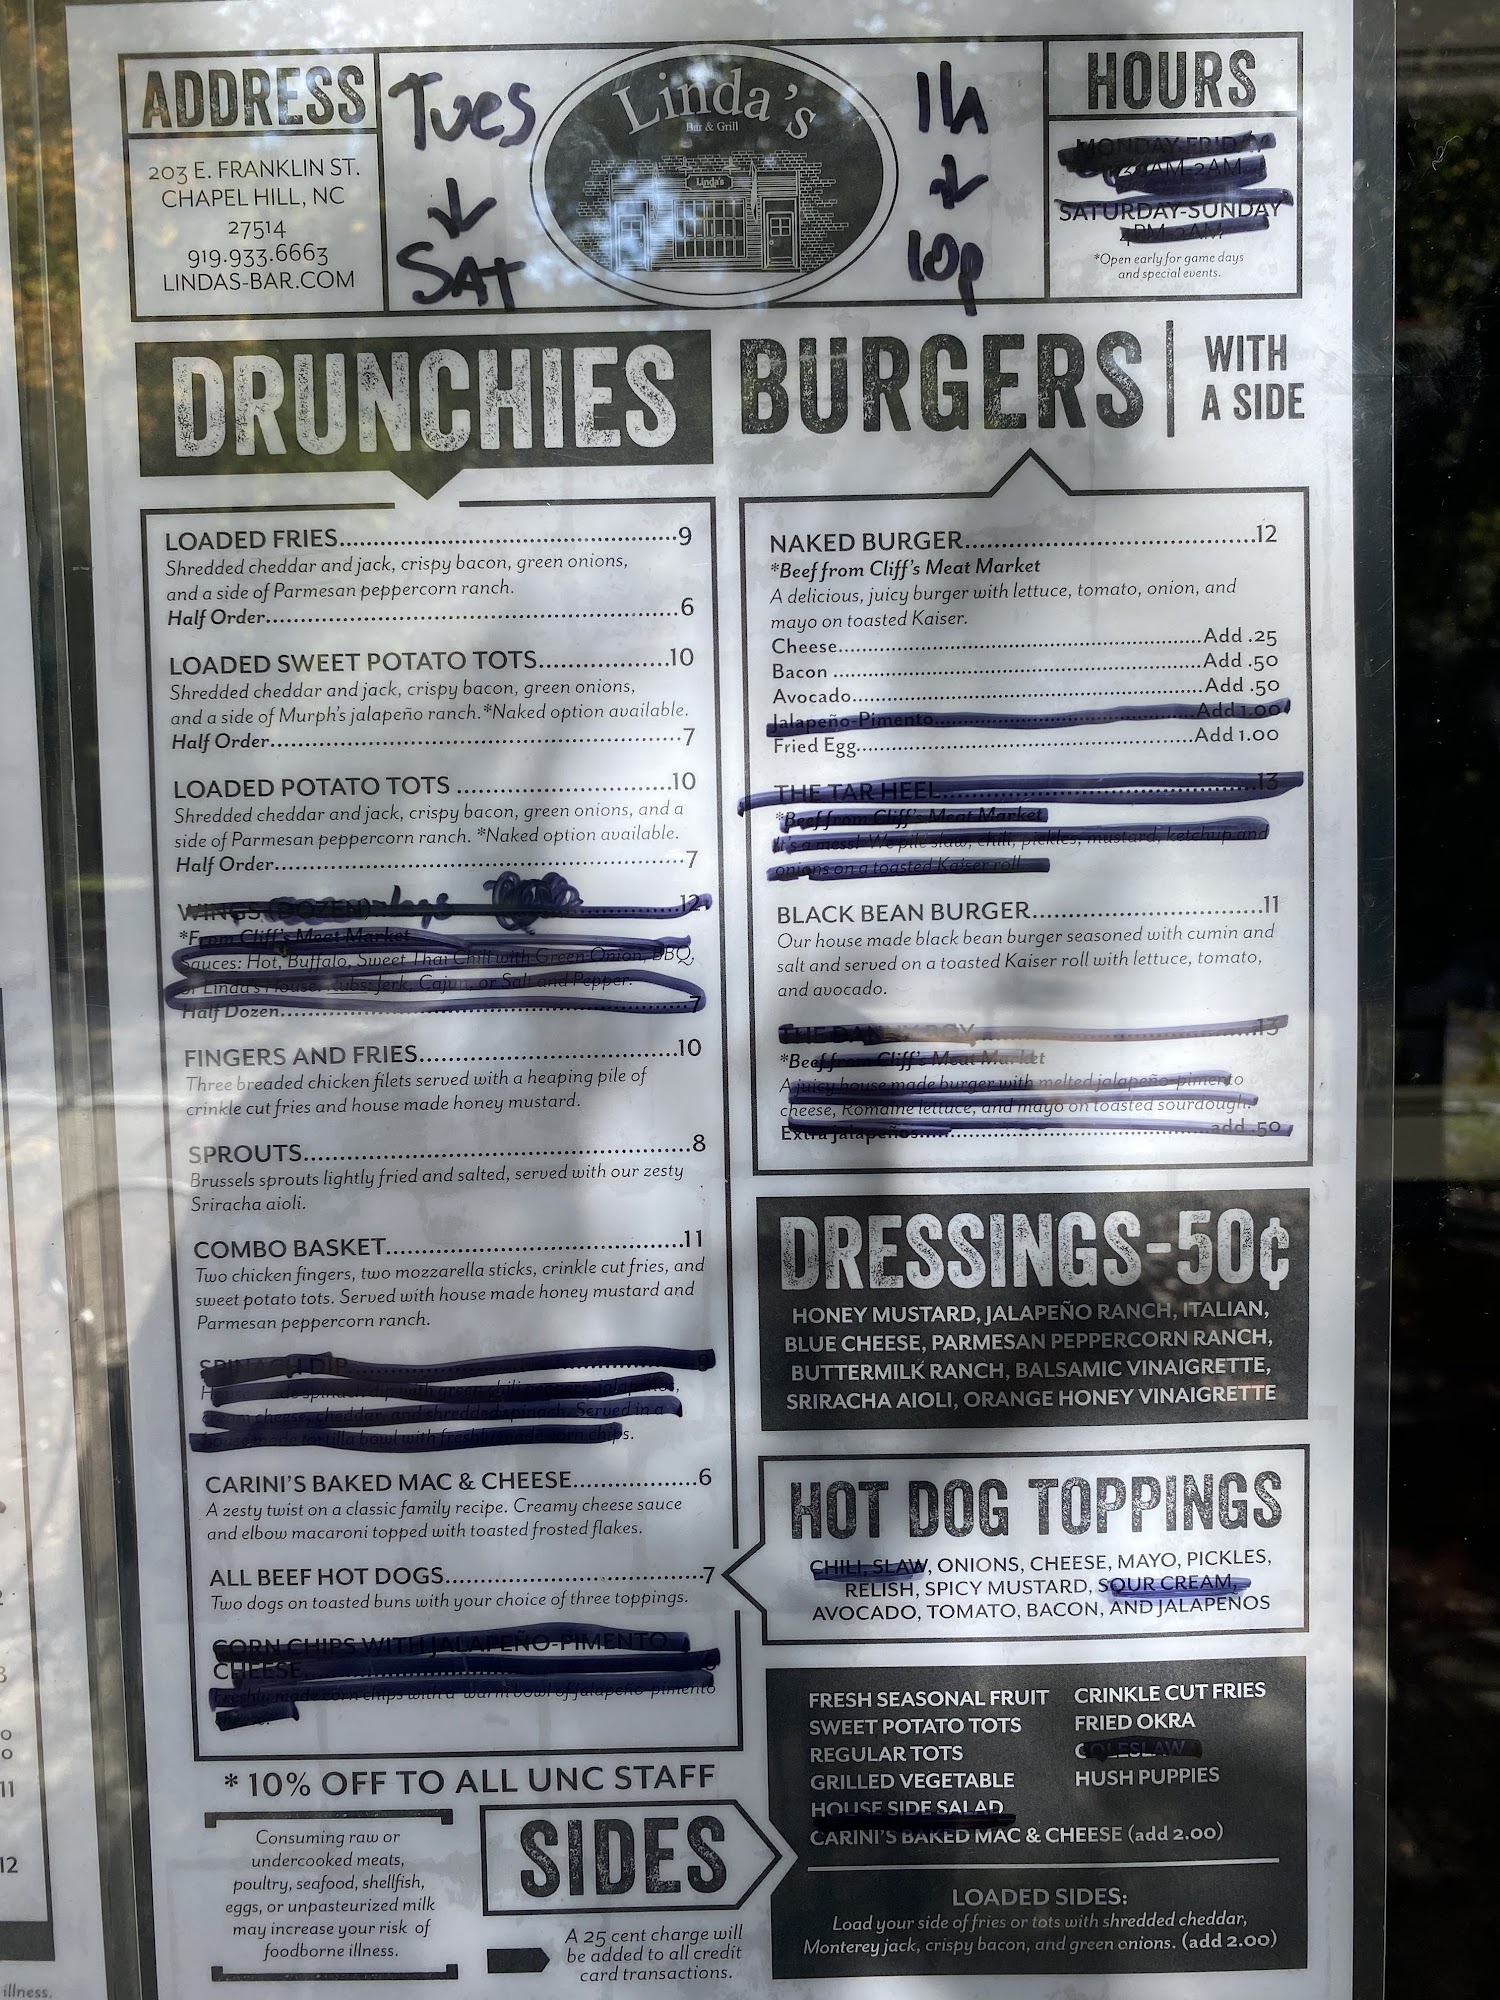 ADDRESS
203 E. FRANKLIN ST.
CHAPEL HILL, NC
27514
919.933.6663
LINDAS-BAR.COM
Tues
↓
SAT
Linda's
Bar & Grill
Linda's
11a
↓
10p
HOURS
MONDAY-FRIDAY
AM-2AM
SATURDAY-SUNDAY
4PM-2AM
*Open early for game days
and special events.
DRUNCHIES
LOADED FRIES 9
Shredded cheddar and jack, crispy bacon, green onions,
and a side of Parmesan peppercorn ranch.
Half Order 6
LOADED SWEET POTATO TOTS 10
Shredded cheddar and jack, crispy bacon, green onions,
and a side of Murph's jalapeño ranch. *Naked option available.
Half Order 7
LOADED POTATO TOTS 10
Shredded cheddar and jack, crispy bacon, green onions, and a
side of Parmesan peppercorn ranch. *Naked option available.
Half Order 7
WINGS (DOZEN) 12
*From Cliff's Meat Market
Sauces: Hot, Buffalo, Sweet Thai Chili with Green Onion, BBQ,
or Linda's House. Rubs: Jerk, Cajun, or Salt and Pepper.
Half Dozen 7
FINGERS AND FRIES 10
Three breaded chicken filets served with a heaping pile of
crinkle cut fries and house made honey mustard.
SPROUTS 8
Brussels sprouts lightly fried and salted, served with our zesty
Sriracha aioli.
COMBO BASKET 11
Two chicken fingers, two mozzarella sticks, crinkle cut fries, and
sweet potato tots. Served with house made honey mustard and
Parmesan peppercorn ranch.
SPINACH DIP 9
House made spinach dip with green chili peppers, jalapeños,
cream cheese, cheddar, and shredded spinach. Served in a
house made tortilla bowl with freshly made corn chips.
CARINI'S BAKED MAC & CHEESE 6
A zesty twist on a classic family recipe. Creamy cheese sauce
and elbow macaroni topped with toasted frosted flakes.
ALL BEEF HOT DOGS 7
Two dogs on toasted buns with your choice of three toppings.
CORN CHIPS WITH JALAPEÑO-PIMENTO
CHEESE
Freshly made corn chips with a warm bowl of jalapeño-pimento
BURGERS | WITH
A SIDE
NAKED BURGER 12
*Beef from Cliff's Meat Market
A delicious, juicy burger with lettuce, tomato, onion, and
mayo on toasted Kaiser.
Cheese Add .25
Bacon Add .50
Avocado Add .50
Jalapeño-Pimento Add 1.00
Fried Egg Add 1.00
THE TAR HEEL 13
*Beef from Cliff's Meat Market
It's a mess! We pile slaw, chili, pickles, mustard, ketchup and
onions on a toasted Kaiser roll
BLACK BEAN BURGER 11
Our house made black bean burger seasoned with cumin and
salt and served on a toasted Kaiser roll with lettuce, tomato,
and avocado.
THE DANNY BOY 13
*Beef from Cliff's Meat Market
A juicy house made burger with melted jalapeño-pimento
cheese, Romaine lettuce, and mayo on toasted sourdough.
Extra jalapeños add .50
DRESSINGS-50¢
HONEY MUSTARD, JALAPEÑO RANCH, ITALIAN,
BLUE CHEESE, PARMESAN PEPPERCORN RANCH,
BUTTERMILK RANCH, BALSAMIC VINAIGRETTE,
SRIRACHA AIOLI, ORANGE HONEY VINAIGRETTE
HOT DOG TOPPINGS
CHILI, SLAW, ONIONS, CHEESE, MAYO, PICKLES,
RELISH, SPICY MUSTARD, SOUR CREAM,
AVOCADO, TOMATO, BACON, AND JALAPEÑOS
* 10% OFF TO ALL UNC STAFF
Consuming raw or
undercooked meats,
poultry, seafood, shellfish,
eggs, or unpasteurized milk
may increase your risk of
foodborne illness.
SIDES
A 25 cent charge will
be added to all credit
card transactions.
FRESH SEASONAL FRUIT
SWEET POTATO TOTS
REGULAR TOTS
GRILLED VEGETABLE
HOUSE SIDE SALAD
CRINKLE CUT FRIES
FRIED OKRA
COLESLAW
HUSH PUPPIES
CARINI'S BAKED MAC & CHEESE (add 2.00)
LOADED SIDES:
Load your side of fries or tots with shredded cheddar,
Monterey jack, crispy bacon, and green onions. (add 2.00)
11
12
illness.